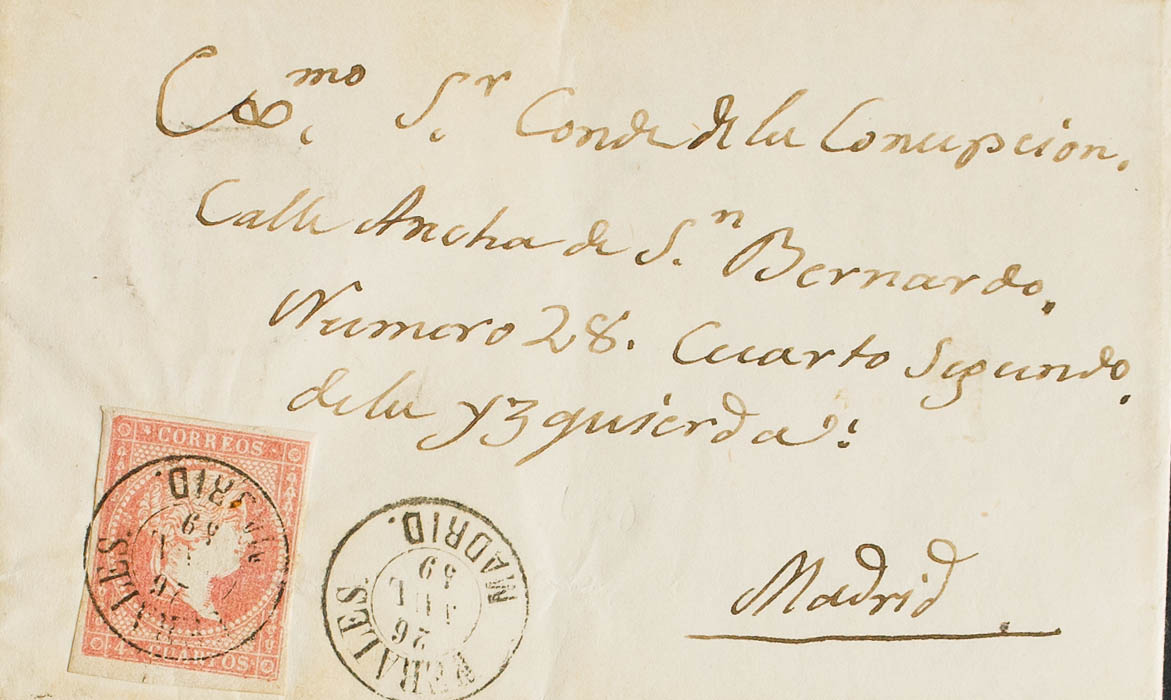 Exmo. Sr. Conde de la Concepcion.
Calle Ancha de Sn. Bernardo.
Numero 28. Cuarto Segundo.
de la Yzquierda.
Madrid.
CORREOS
4 CUARTOS
MADRID.
26
JUL
59
MADRID.
26
JUL
59